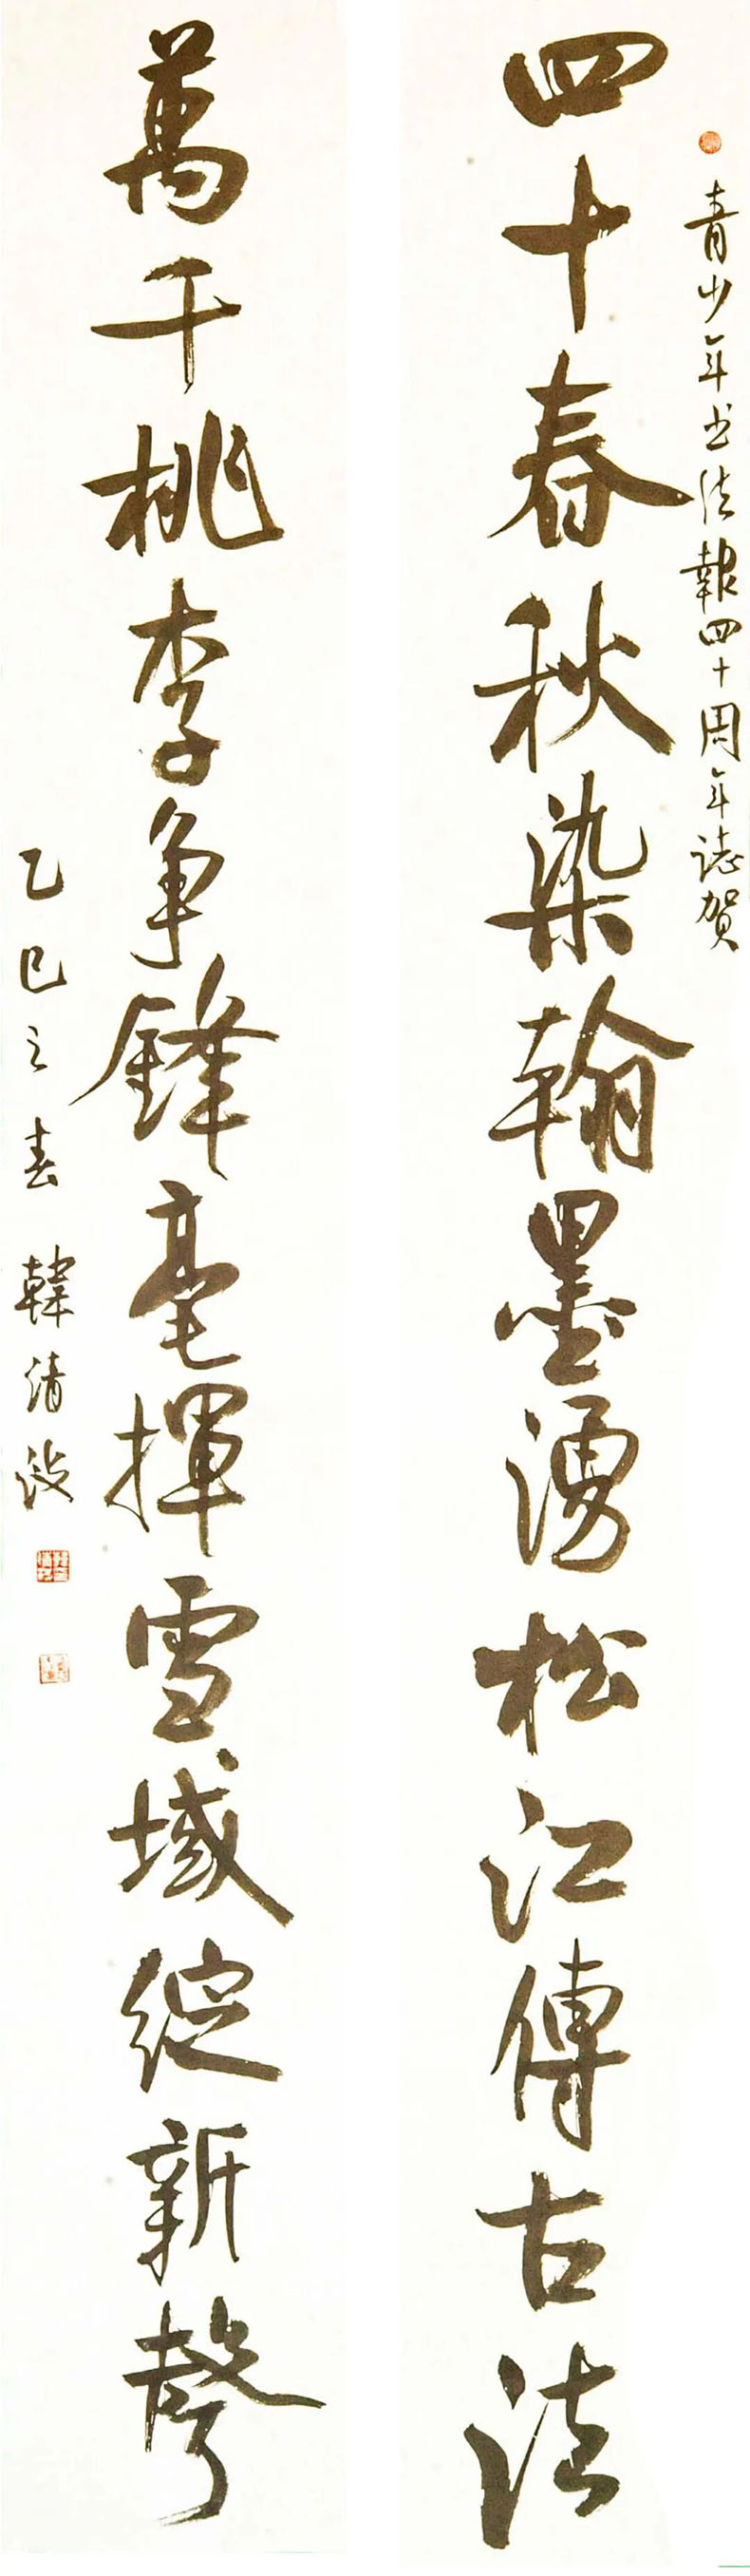 青少年书法報四十周年誌贺
四十春秋染翰墨湧松江傳古法
萬千桃李争鋒毫揮雪域綻新聲
乙巳之春 韓清波